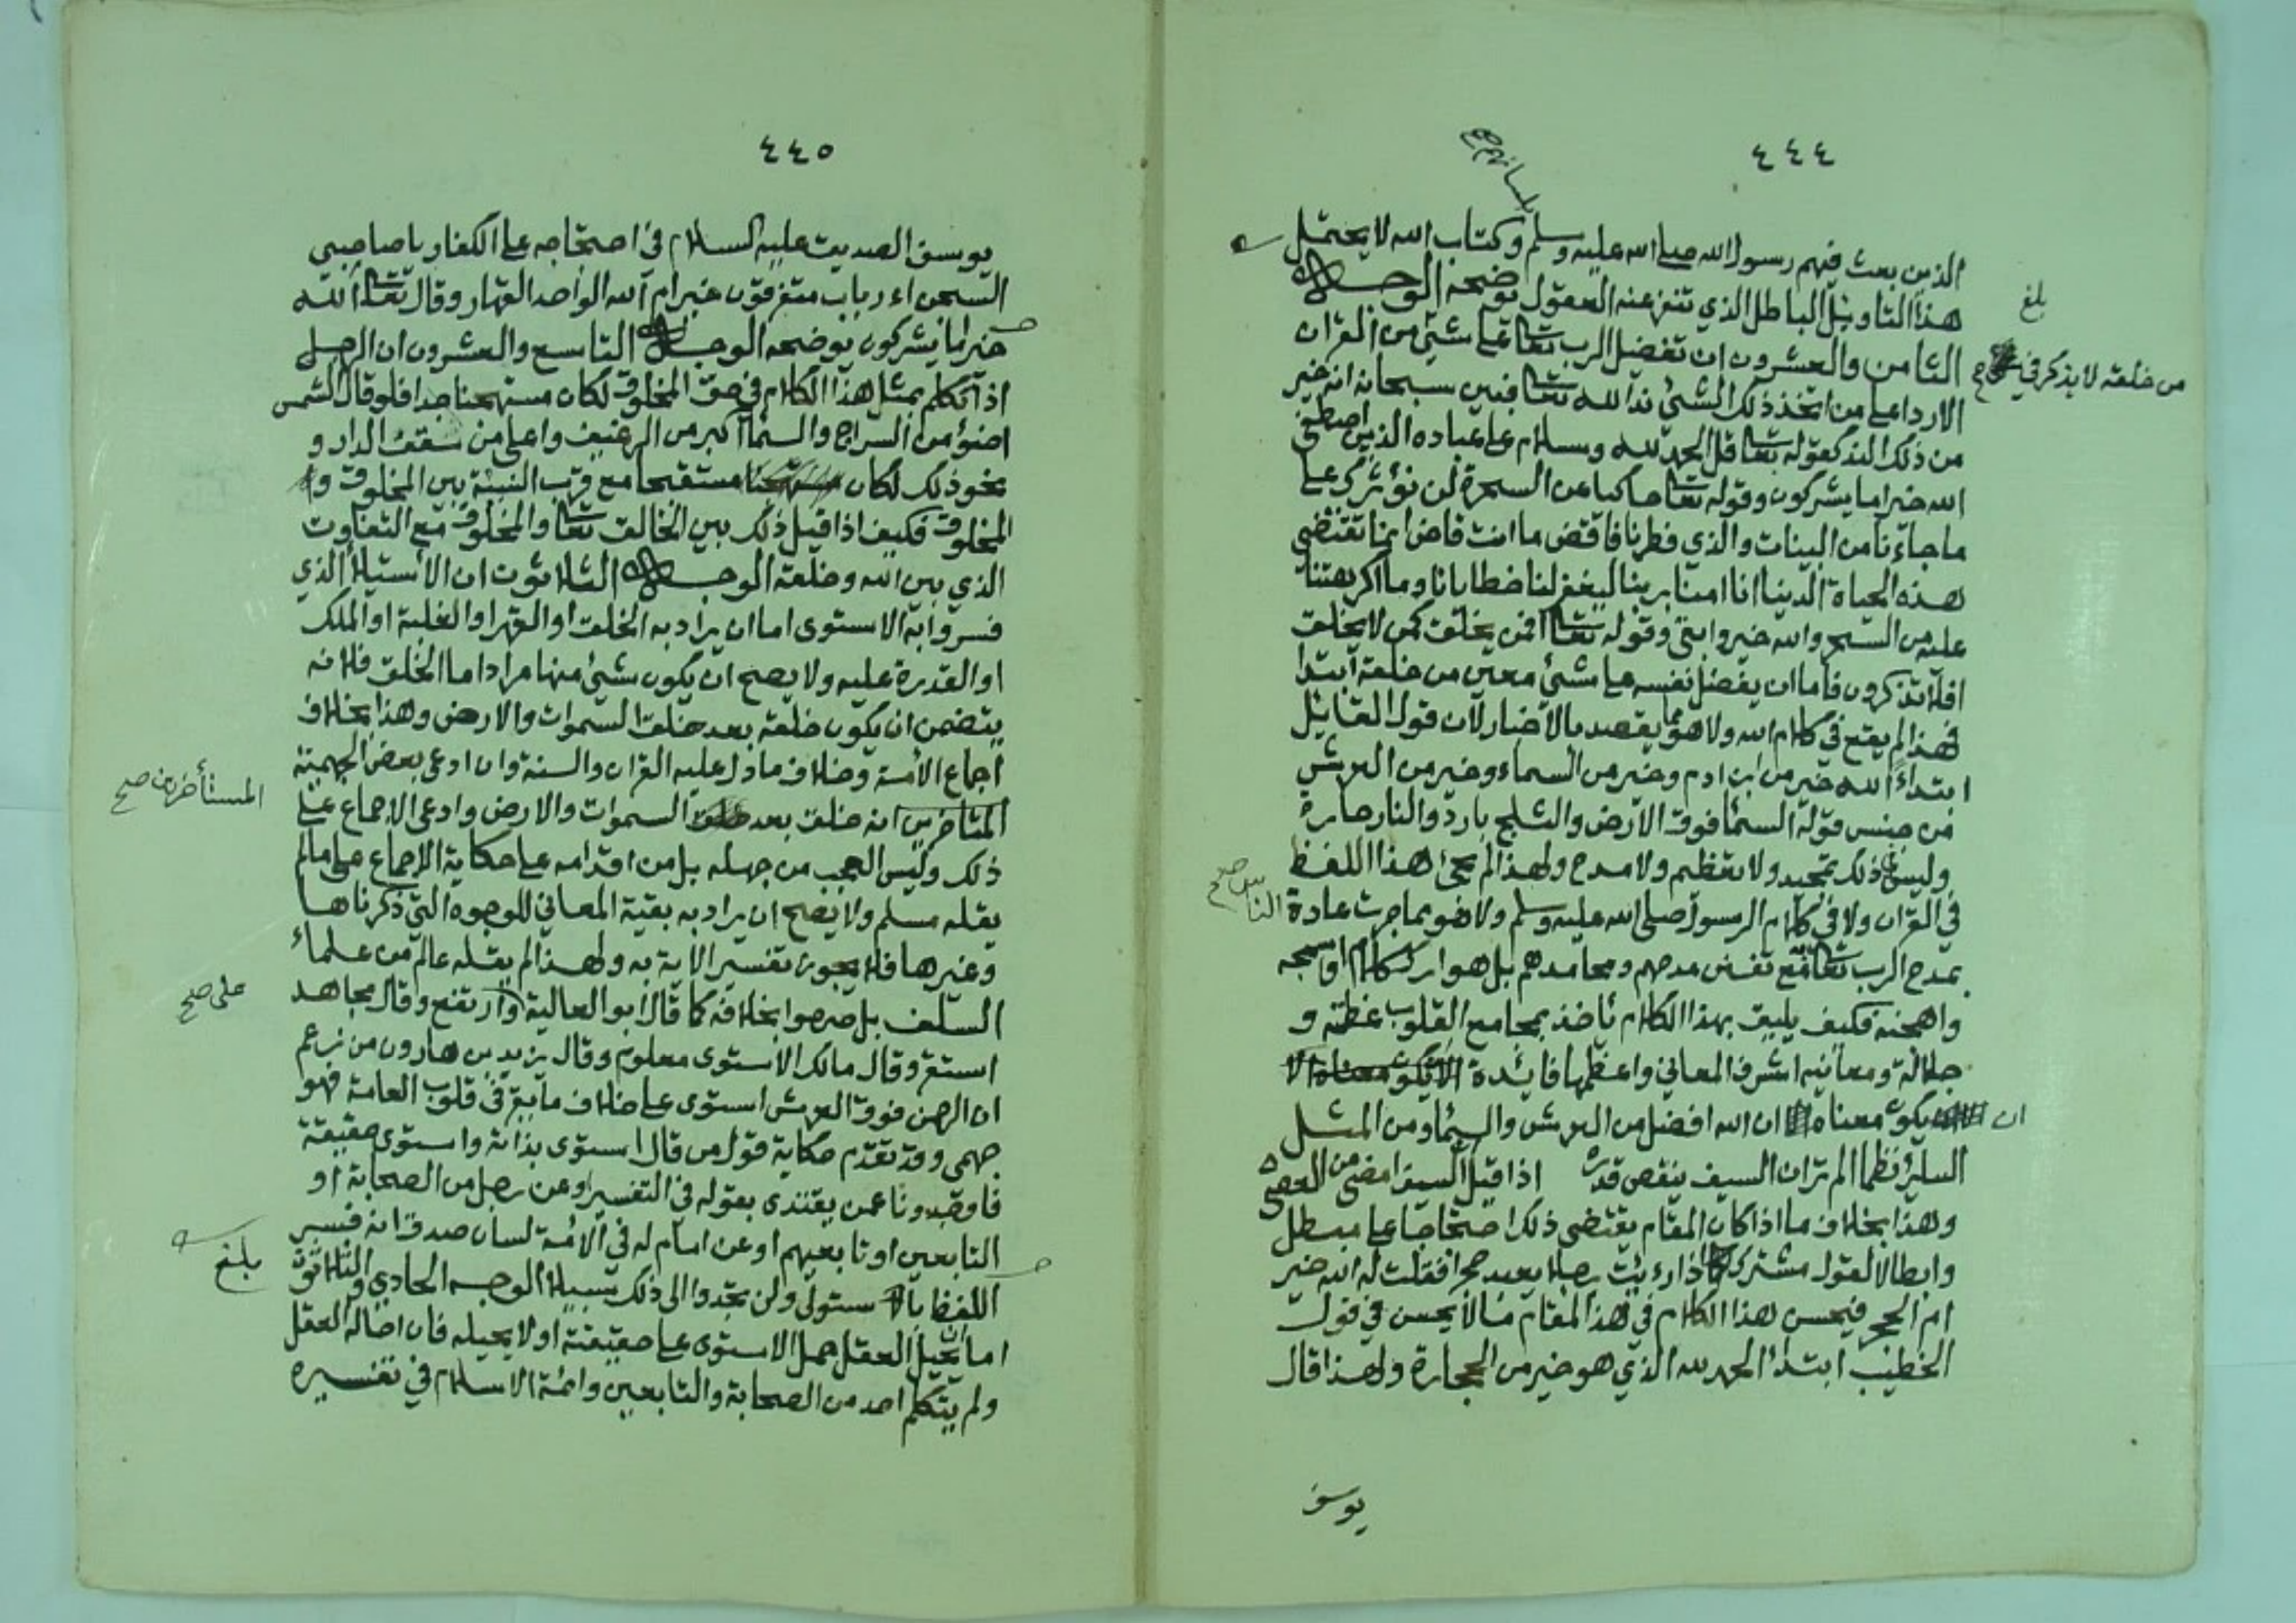 ٤٤٤
بلسانهم صح
الذين بعث فيهم رسول الله صلى الله عليه وسلم وكتاب الله لا يحتمل
هذا التاويل الباطل الذي تنفر عنه العقول يوضحه الوجه
بلغ
الثامن والعشرون ان تفضيل الرب تعالى على شيئ من القران
من خلقه لا يذكر في صح
الا ردا على من اتخذ ذلك الشيئ ندا لله تعالى فبين سبحانه انه خير
من ذلك الند كقوله تعالى قل الحمد لله وسلام على عباده الذين اصطفى
الله خير اما يشركون وقوله تعالى حاكيا عن السحرة لن نؤثرك على
ما جاءنا من البينات والذي فطرنا فاقض ما انت قاض انما تقتضي
هذه الحياة الدنيا انا امنا بربنا ليغفر لنا خطايانا وما اكرهتنا
عليه من السحر والله خير وابقى وقوله تعالى افمن يخلق كمن لا يخلق
افلا تذكرون فاما ان يفضل نفسه على شيئ معين من خلقه ابتدا
فهذا لم يقع في كلام الله ولا هو مما يقصد بالاخبار لان قول القايل
ابتداء الله خير من ابن ادم وخير من السماء وخير من العرش
من جنس قوله السما فوق الارض والثلج بارد والنار حارة
وليس في ذلك تمجيد ولا تعظيم ولا مدح ولهذا لم يجئ هذا اللفظ
في القران ولا في كلام الرسول صلى الله عليه وسلم ولا هو مما جرت عادة
الناس صح
بمدح الرب تعالى مع تفنن مدحهم ومحامدهم بل هو ارك كلام اوسمجه
واهجنه فكيف يليق بهذا الكلام تاخذ بمجامع القلوب عظمته و
جلالته ومعانيه اشرف المعاني واعظمها فايدة
ان يكون معناه ان الله افضل من العرش والسما ومن المثل
الساير نظما الم تر ان السيف ينقص قدره اذا قيل السيف امضى من العصى
وهذا بخلاف ما اذا كان المقام يقتضي ذلك احتجاجا على مبطل
وابطالا لقول مشرك كما اذا رءيت رجلا يعبد حجرا فقلت له الله خير
ام الحجر فيحسن هذا الكلام في هذا المقام ما لا يحسن في قول
الخطيب ابتدا الحمد لله الذي هو خير من الحجارة ولهذا قال
يوسف
٤٤٥
يوسف الصديق عليه السلام في احتجاجه على الكفار يا صاحبي
السجن اءرباب متفرقون خير ام الله الواحد القهار وقال تعالى الله
خير اما يشركون يوضحه الوجه التاسع والعشرون ان الرجل
اذا تكلم بمثل هذا الكلام في حق المخلوق لكان مستهجنا جدا فلو قال الشمس
اضوؤ من السراج والسما اكبر من الرغيف واعلى من سقف الدار و
نحو ذلك لكان مستقبحا مع قرب النسبة بين المخلوق و
المخلوق فكيف اذا قيل ذلك بين الخالق تعالى والمخلوق مع التفاوت
الذي بين الله وخلقه الوجه الثلاثون ان الاستيلا الذي
فسروا به الاستوى اما ان يراد به الخلق او القهر او الغلبة او الملك
او القدرة عليه ولا يصح ان يكون شيئ منها مرادا اما الخلق فلانه
يتضمن ان يكون خلقه بعد خلق السموات والارض وهذا بخلاف
اجماع الامة وخلاف ما دل عليه القران والسنة وان ادعى بعض الجهمية
المتاخرين انه خلق بعد خلق السموات والارض وادعى الاجماع على
المستأخرين صح
ذلك وليس العجب من جهله بل من اقدامه على حكاية الاجماع على ما لم
يقله مسلم ولا يصح ان يراد به بقية المعاني للوجوه التي ذكرناها
وغيرها فلا يجوز تفسير الاية به ولهذا لم يقله عالم من علماء
السلف بل صرحوا بخلافه كما قال ابو العالية وارتفع وقال مجاهد
على صح
استقر وقال مالك الاستوى معلوم وقال يزيد بن هارون من زعم
ان الرحمن فوق العرش استوى على خلاف ما يقر في قلوب العامة فهو
جهمي وقد تقدم حكاية قول من قال استوى بذاته واستوى حقيقة
فاوجدونا عمن يقتدى بقوله في التفسير او عن رجل من الصحابة او
التابعين او تابعيهم او عن امام له في الامة لسان صدق انه فسر
اللفظ بالاستولى ولن تجدوا الى ذلك سبيلا الوجه الحادي والثلاثون
بلغ
اما ان يحيل العقل حمل الاستوى على حقيقته او لا يحيله فان احاله العقل
ولم يتكلم احد من الصحابة والتابعين وائمة الاسلام في تفسيره